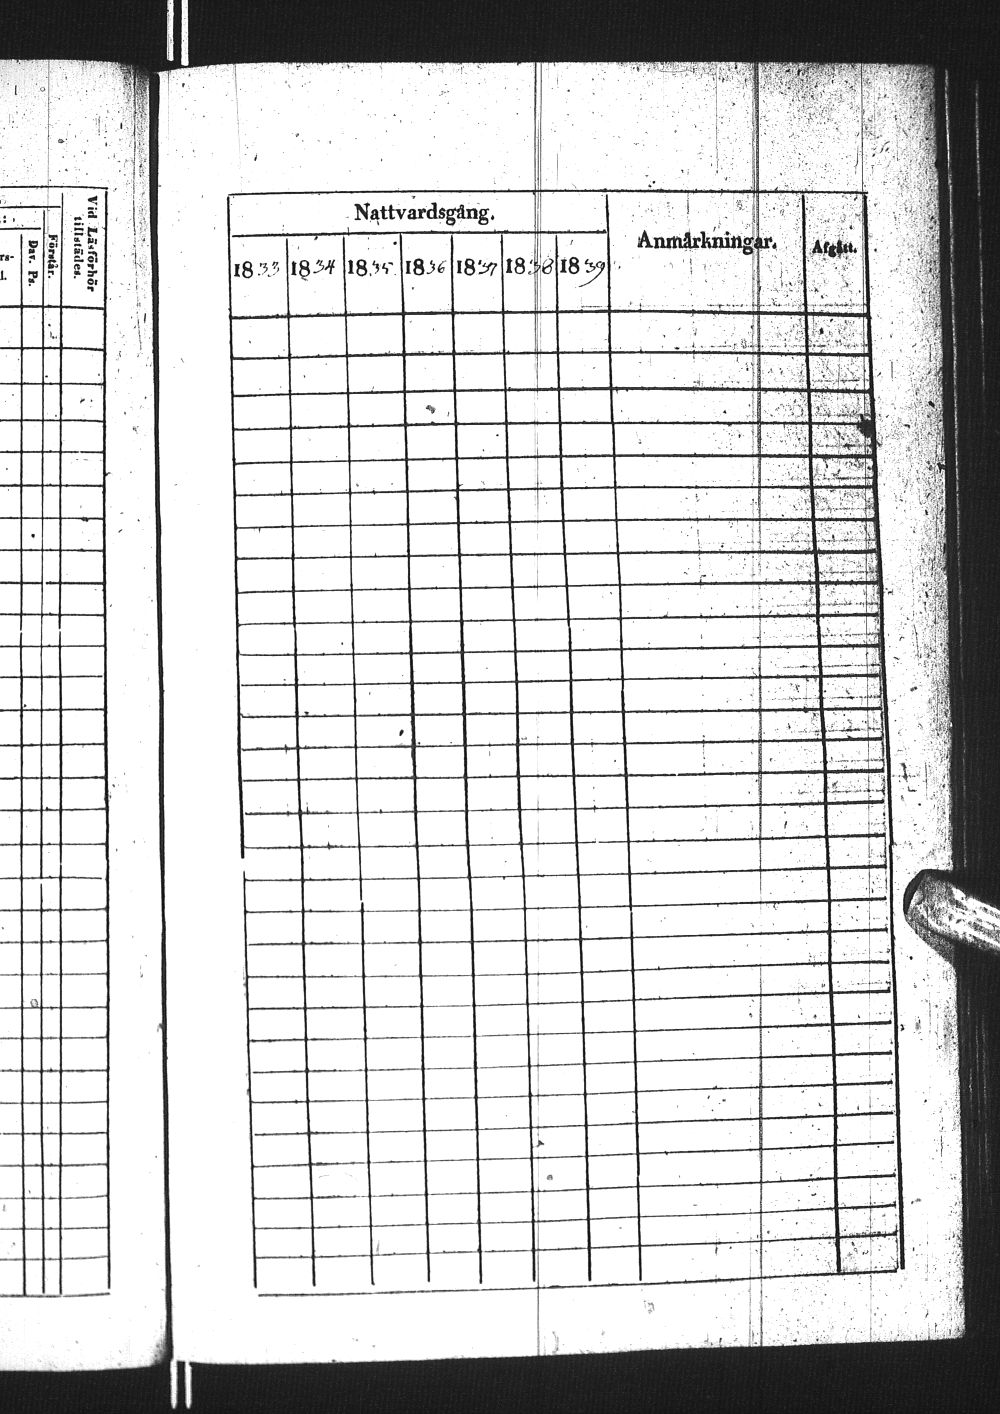 Vid Läsförhör
tillstädes.
Förstår.
Dav. Ps.
Nattvardsgång.
Anmärkningar.
Afgått.
1833 1834 1835 1836 1837 1838 1839